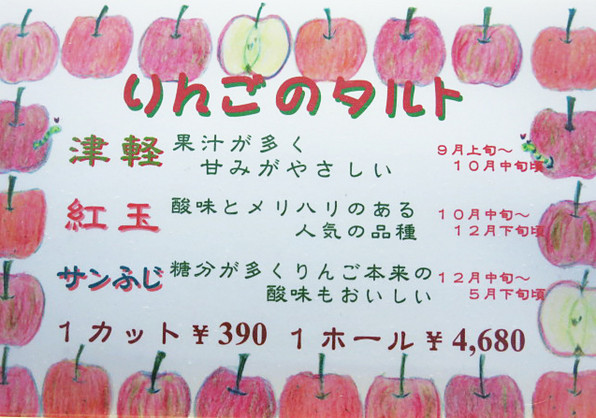 りんごのタルト
津軽 果汁が多く 9月上旬～
甘みがやさしい 10月中旬頃
紅玉 酸味とメリハリのある 10月中旬～
人気の品種 12月下旬頃
サンふじ 糖分が多くりんご本来の 12月中旬～
酸味もおいしい 5月下旬頃
1カット¥390 1ホール¥4,680